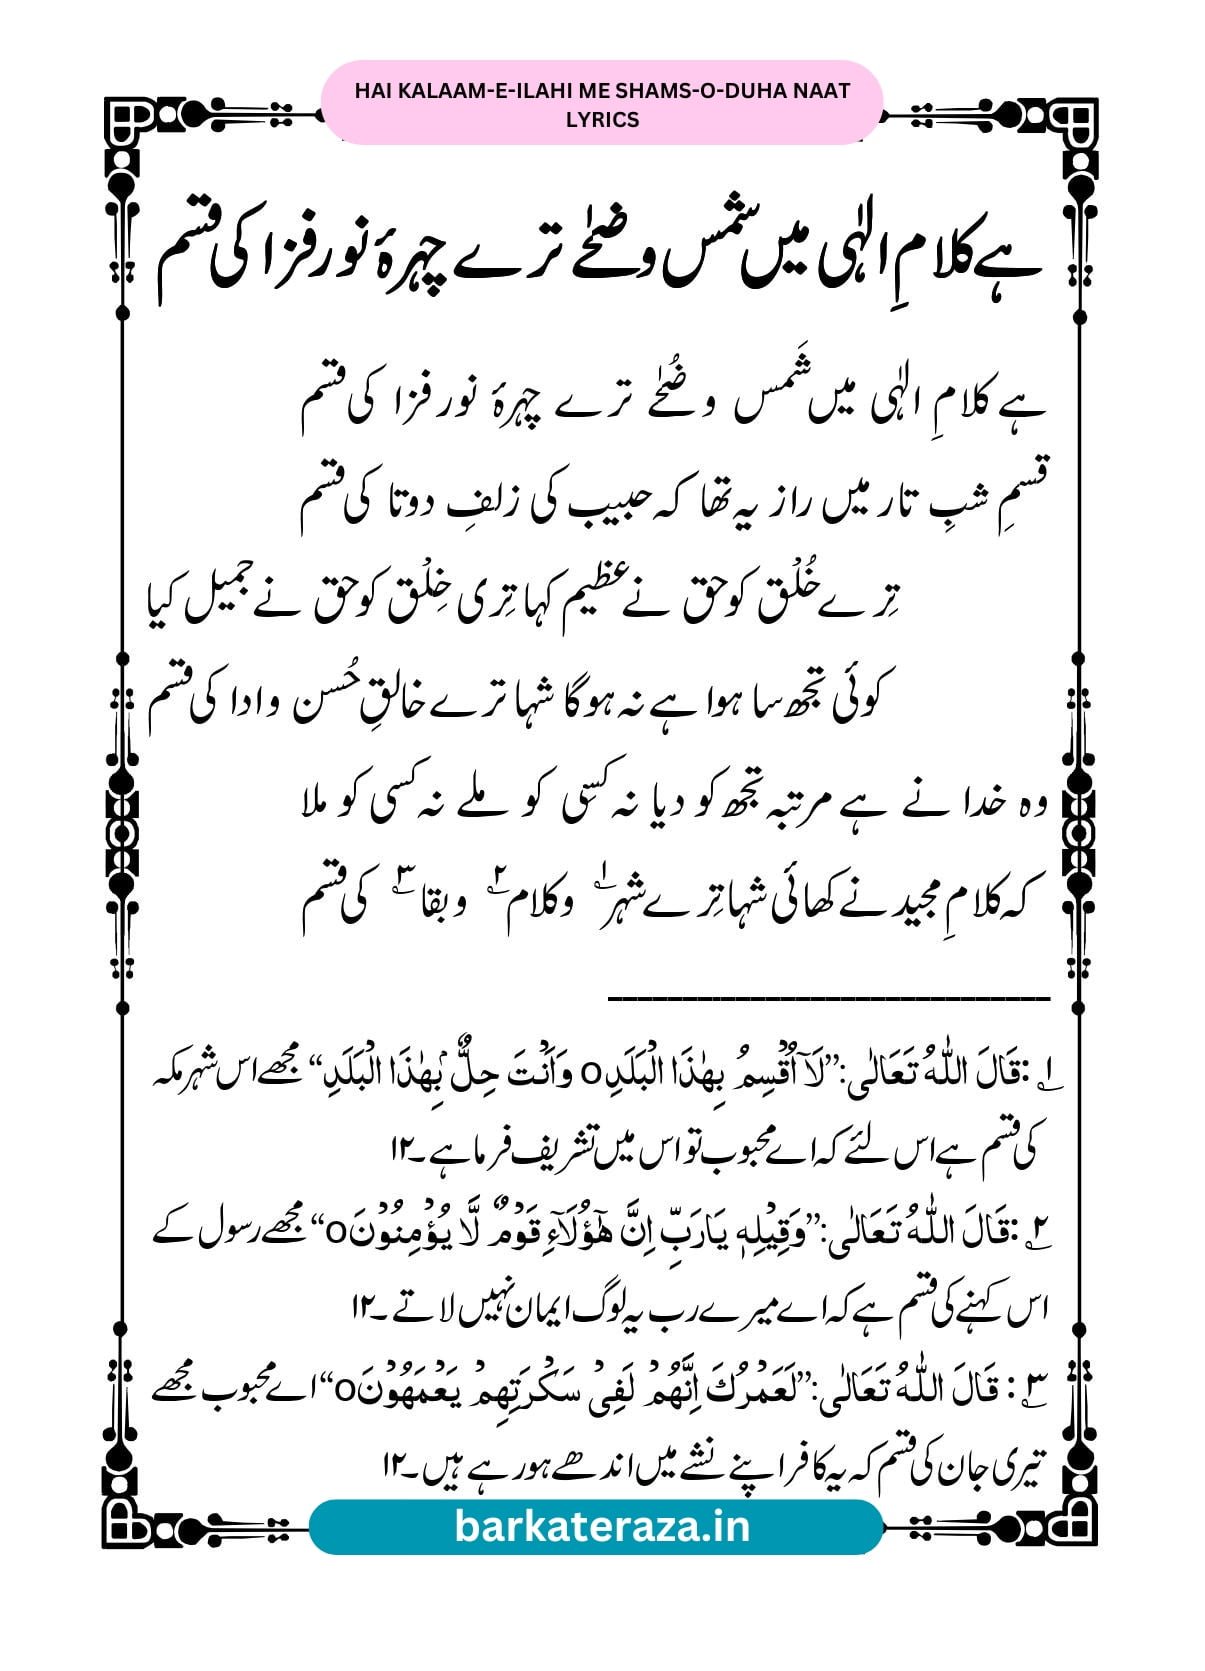 HAI KALAAM-E-ILAHI ME SHAMS-O-DUHA NAAT
LYRICS
ہے کلامِ الٰہی میں شمس وضحٰے ترے چہرۂ نور فزا کی قسم
ہے کلامِ الٰہی میں شَمس وضُحٰے ترے چہرۂ نور فزا کی قسم
قسمِ شبِ تار میں راز یہ تھا کہ حبیب کی زلفِ دوتا کی قسم
تِرے خُلْق کو حق نے عظیم کہا تِری خِلْق کو حق نے جمیل کیا
کوئی تجھ سا ہوا ہے نہ ہوگا شہا ترے خالقِ حُسن وادا کی قسم
وہ خدا نے ہے مرتبہ تجھ کو دیا نہ کسِی کو ملے نہ کسی کو ملا
کہ کلامِ مجید نے کھائی شہا تِرے شہر؁۱ وکلام؁۲ وبقا؁۳ کی قسم
؁۱ :قَالَ اللّٰہُ تَعَالٰی:’’لَاۤ اُقْسِمُ بِھٰذَا الْبَلَدِo وَاَنْتَ حِلٌّۢ بِھٰذَا الْبَلَدِ‘‘ مجھے اس شہر مکہ
کی قسم ہے اس لئے کہ اے محبوب تو اس میں تشریف فرما ہے۔۱۲
؁۲ :قَالَ اللّٰہُ تَعَالٰی:’’وَقِیْلِهٖ یَارَبِّ اِنَّ ھٰۤؤُلَآءِ قَوْمٌ لَّا یُؤْمِنُوْنَo‘‘ مجھے رسول کے
اس کہنے کی قسم ہے کہ اے میرے رب یہ لوگ ایمان نہیں لاتے ۔۱۲
؁۳ : قَالَ اللّٰہُ تَعَالٰی:’’لَعَمْرُكَ اِنَّھُمْ لَفِیْ سَکْرَتِھِمْ یَعْمَھُوْنَo‘‘ اے محبوب مجھے
تیری جان کی قسم کہ یہ کافر اپنے نشے میں اندھے ہورہے ہیں۔۱۲
barkateraza.in